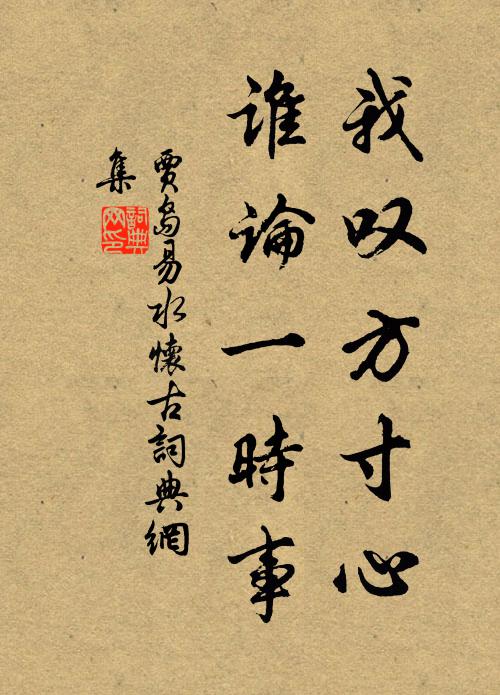 我叹方寸心
谁論一時事
賈島易水懷古詞典網
集
詞典
网印